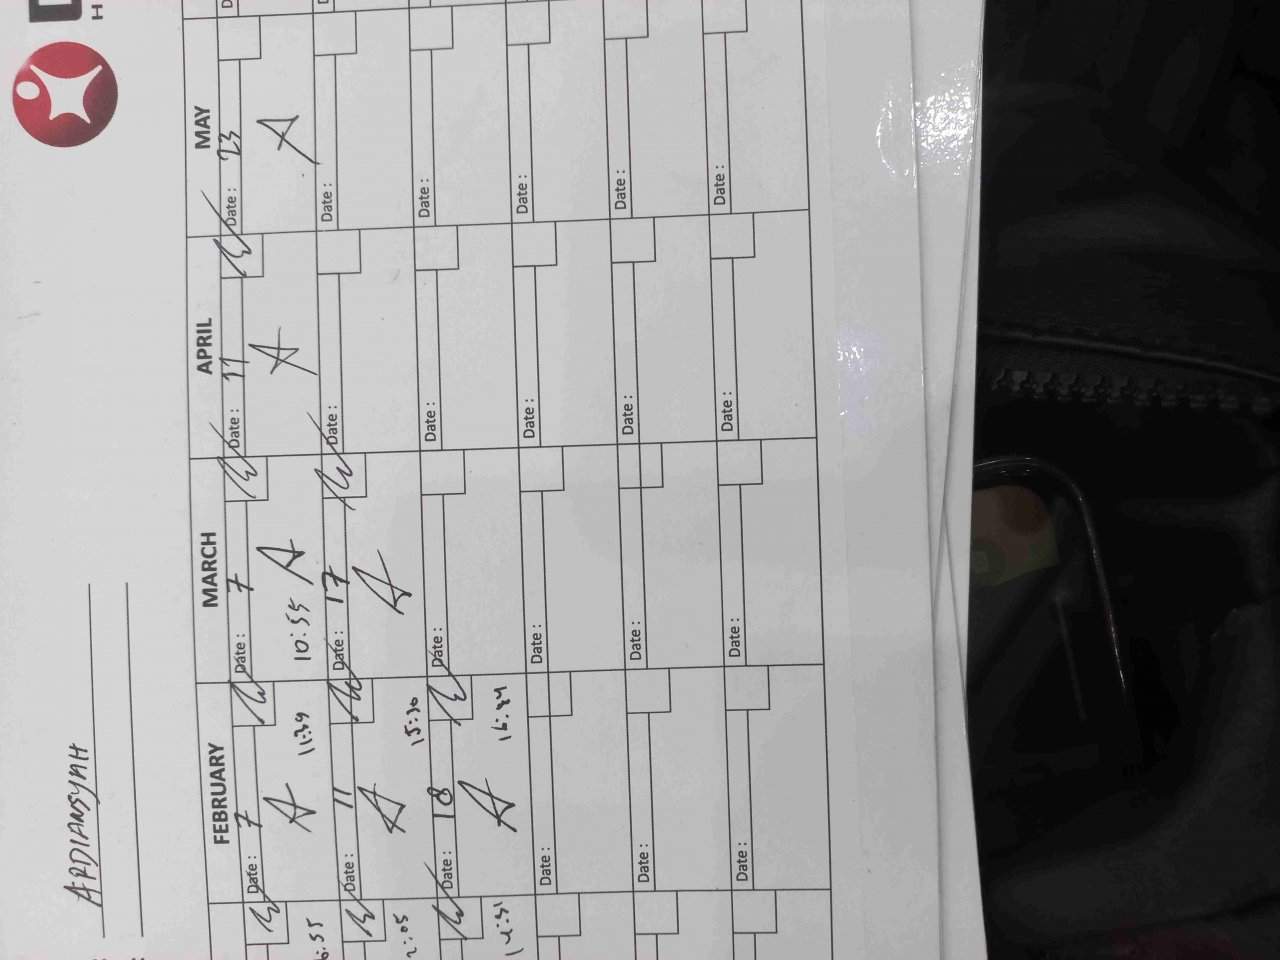 ARDIANSYAH
FEBRUARY MARCH APRIL MAY
Date: 7 Date: 7 Date: 11 Date: 23
A 11:39 10:55 A A A
Date: 11 Date: 17 Date: Date:
2:05 A 15:30 A
Date: 18 Date: Date: Date:
A 16:44
Date: Date: Date: Date:
Date: Date: Date: Date:
Date: Date: Date: Date: